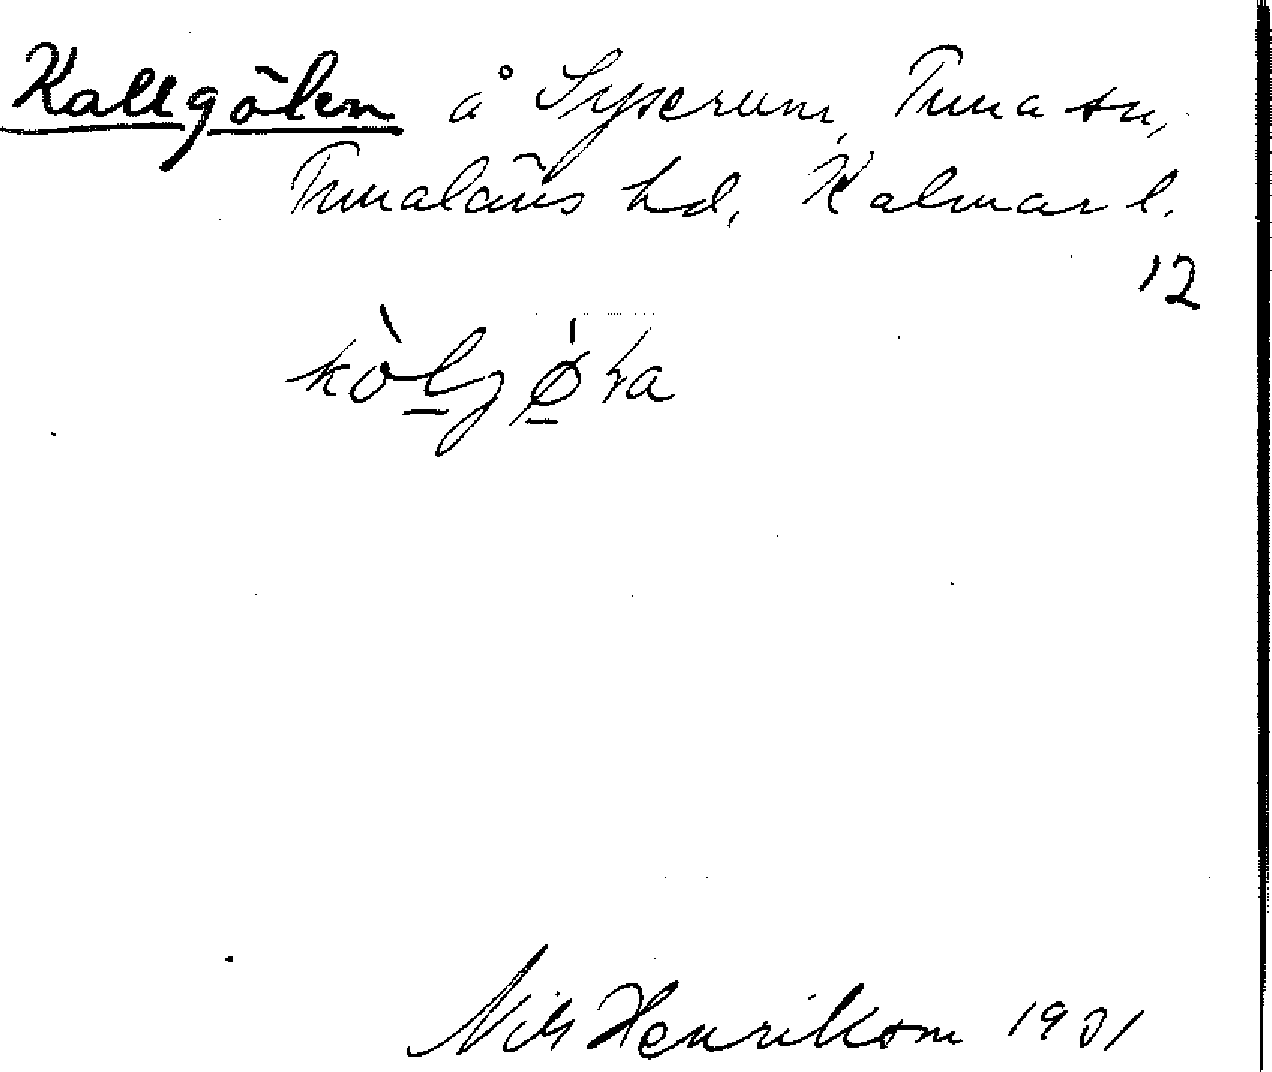 Kallgölen å Syserum, Tuna sn,
Tunaläns hd, Kalmar l.
12
Nils Henrikson 1931